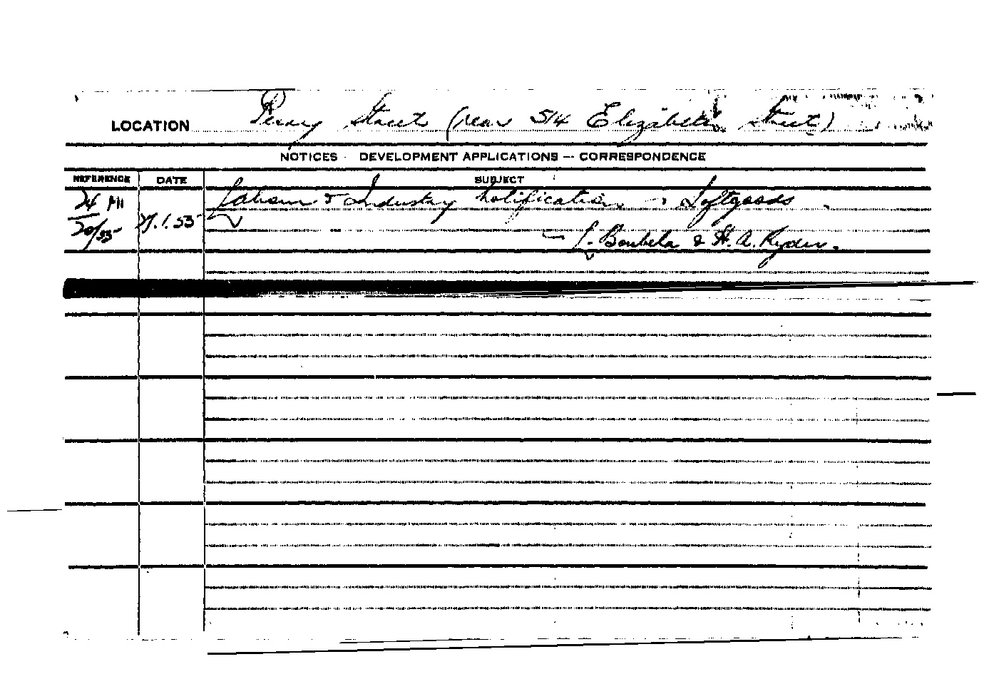 LOCATION Perry Street (rear 514 Elizabeth Street)
NOTICES - DEVELOPMENT APPLICATIONS — CORRESPONDENCE
REFERENCE DATE SUBJECT
24 PH 20/53 27.1.53 Labour & Industry Notification - Softgoods
- L. & H. A. Ryder.